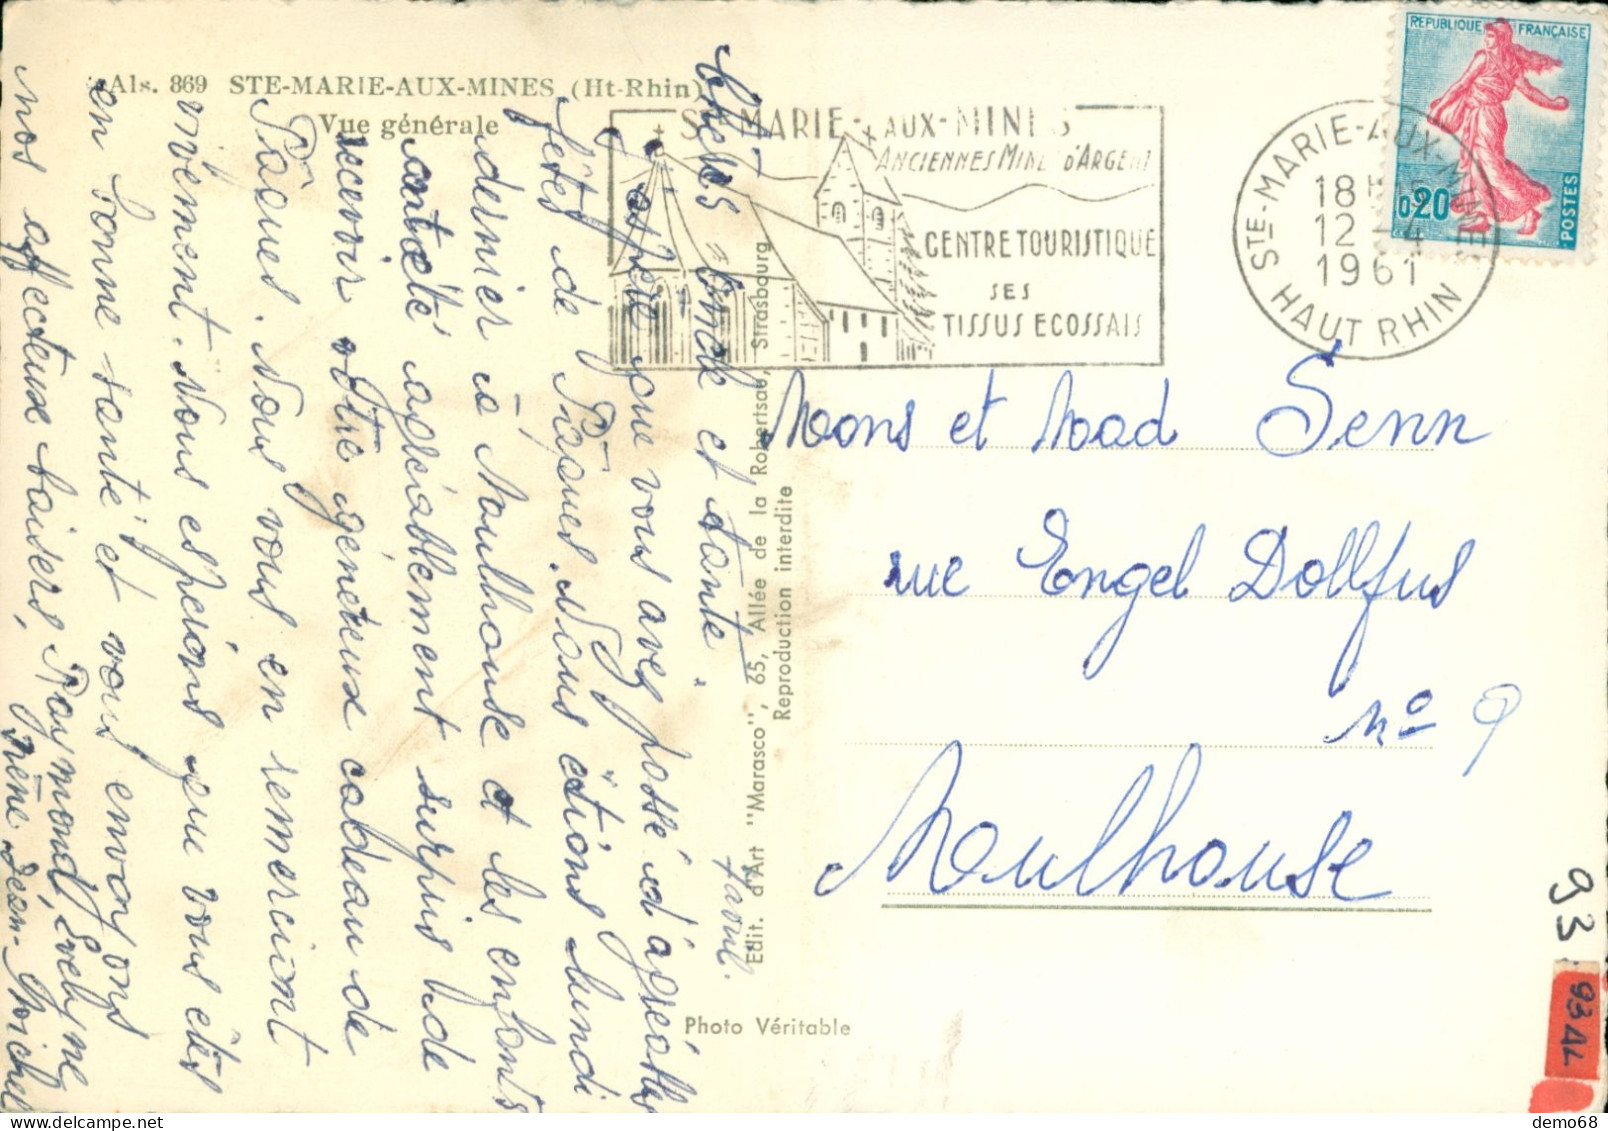 Als. 869 STE-MARIE-AUX-MINES (Ht-Rhin)
Vue générale
STE MARIE-AUX-MINES
ANCIENNES MINES D'ARGENT
CENTRE TOURISTIQUE
SES
TISSUS ECOSSAIS
STE-MARIE-AUX-MINES
18H
12-4
1961
HAUT RHIN
REPUBLIQUE FRANÇAISE
0,20
POSTES
Chers oncle et tante.
J'espère que vous avez passé d'agréables
fêtes de Pâques. Nous étions lundi
dernier à Moulhouse et les enfants
ont été agréablement surpris de
recevoir votre généreux cadeau de
Pâques. Nous vous en remercions
vivement. Nous espérons que vous êtes
en bonne santé et vous envoyons
nos affectueux baisers, Raymond, Evelyne
Irène Jean-Michel
Mons et Mad Senn
rue Engel Dollfus
no 9
Moulhouse
Edit. d'Art "Marasco", 65, Allée de la Robertsau, Strasbourg
Reproduction interdite
Photo Véritable
93
93 AL
demo68